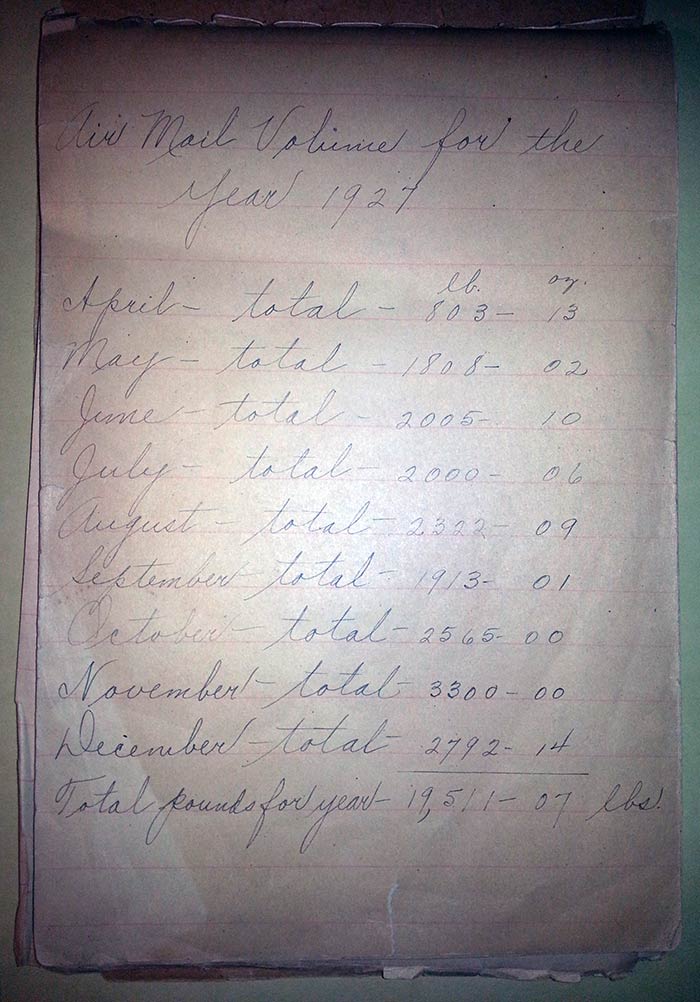 Air Mail Volume for the
Year 1927
lb. oz.
April - total - 803 - 13
May - total - 1808 - 02
June - total - 2005 - 10
July - total - 2000 - 06
August - total - 2322 - 09
September - total - 1913 - 01
October - total - 2565 - 00
November - total - 3300 - 00
December - total - 2792 - 14
Total pounds for year - 19,511 - 07 lbs.